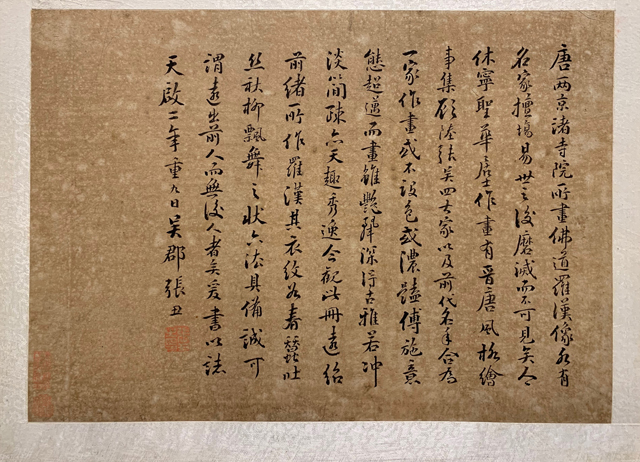 唐两京諸寺院所畫佛道羅漢像各有
名家擅場易世之後磨滅而不可見矣今
休寧聖華居士作畫有晋唐風格繪
事集顧陸張吴四大家以及前代名手合為
一家作畫或不設色或濃豔傅施意
態超邁而畫雖艷深得古雅若冲
淡簡疎亦天趣秀逸今觀此冊遠紹
前緒所作羅漢其衣紋若春蠶吐
絲秋柳飄舞之狀六法具備誠可
謂遠出前人而無後人者矣爰書以誌
天啟二年重九日吴郡張丑